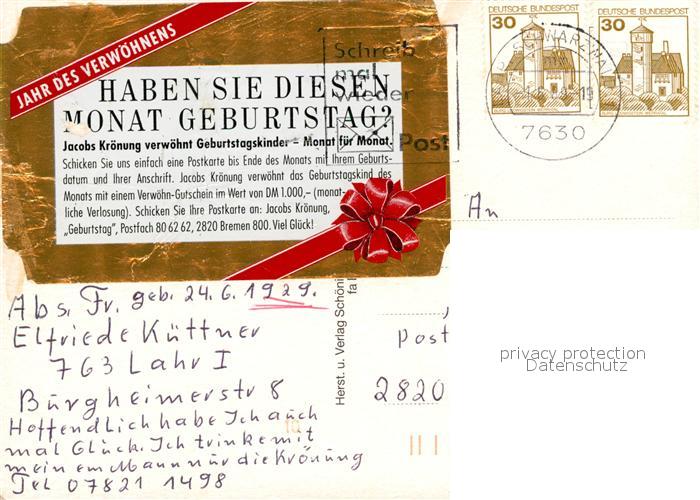 JAHR DES VERWÖHNENS
HABEN SIE DIESEN
MONAT GEBURTSTAG?
Jacobs Krönung verwöhnt Geburtstagskinder – Monat für Monat.
Schicken Sie uns einfach eine Postkarte bis Ende des Monats mit Ihrem Geburts-
datum und Ihrer Anschrift. Jacobs Krönung verwöhnt das Geburtstagskind des
Monats mit einem Verwöhn-Gutschein im Wert von DM 1.000,– (monat-
liche Verlosung). Schicken Sie Ihre Postkarte an: Jacobs Krönung,
„Geburtstag", Postfach 80 62 62, 2820 Bremen 800. Viel Glück!
Schreib
mal
wieder
Post
30 DEUTSCHE BUNDESPOST
30 DEUTSCHE BUNDESPOST
SCHWARZWALD
7630
An
Abs. Fr. geb. 24. 6. 1929.
Elfriede Küttner
763 Lahr I
Burgheimerstr 8
Hoffendlich habe Ich auch
mal Glück. Ich trinke mit
meinem Mann nur die Krönung
Tel 07821 1498
Herst. u. Verlag Schöni
fa
Post
2820
privacy protection
Datenschutz